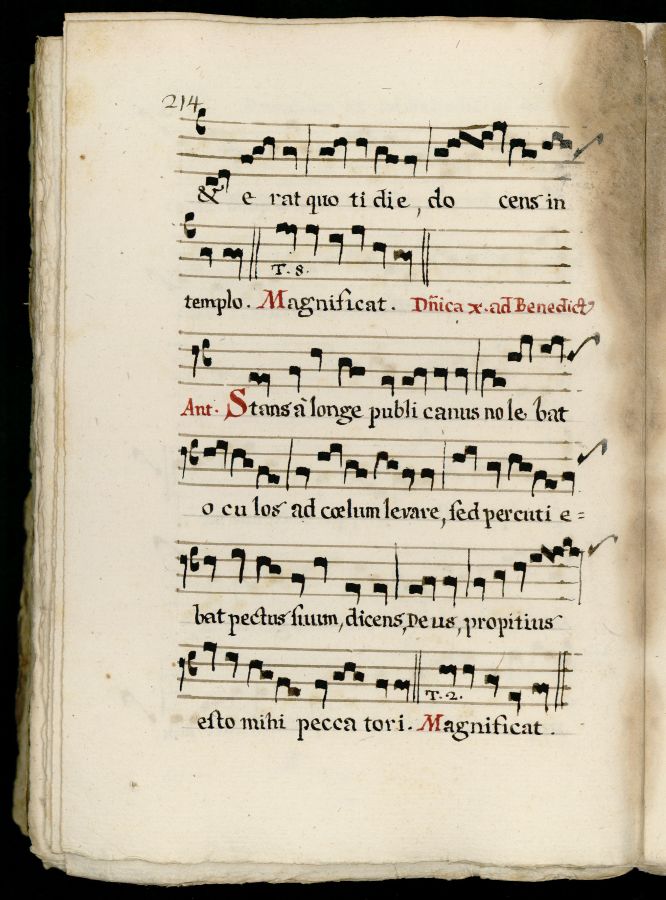 214
& e rat quo ti die, do cens in
T. 8.
templo. Magnificat. Dñica x. ad Benedict
Ant. Stans à longe publi canus no le bat
o cu los ad cœlum levare, sed percuti e=
bat pectus suum, dicens, De us, propitius
T. 2.
esto mihi pecca tori. Magnificat.